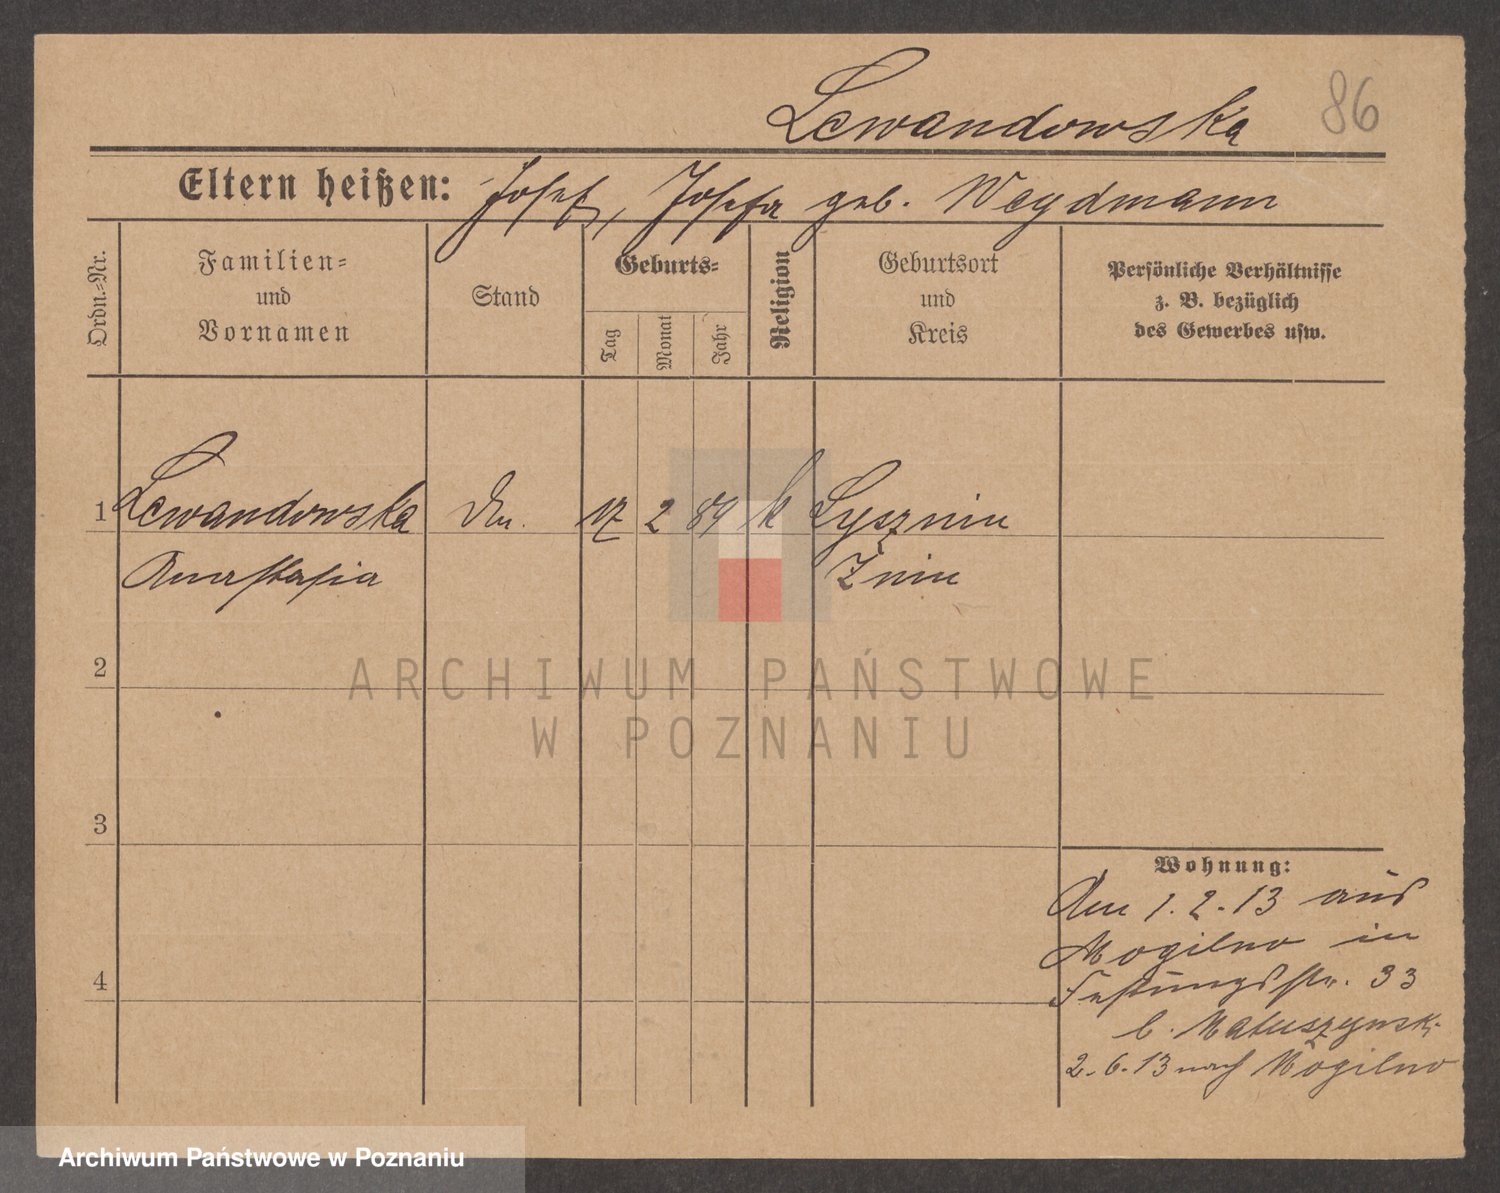 Lewandowska 86
Eltern heißen: Josef, Josefa geb. Weydmann
Ordn.-Nr.
Familien-
und
Vornamen
Stand
Geburts-
Tag
Monat
Jahr
Religion
Geburtsort
und
Kreis
Persönliche Verhältnisse
z. B. bezüglich
des Gewerbes usw.
1 Lewandowska 17 2 89 k Lysznin
Anastasia Znin
2
ARCHIWUM PAŃSTWOWE
W POZNANIU
3
Wohnung:
Am 1.2.13 aus
Mogilno in
4
Festungsstr. 33
b. Matuszynski
2.6.13 nach Mogilno
Archiwum Państwowe w Poznaniu